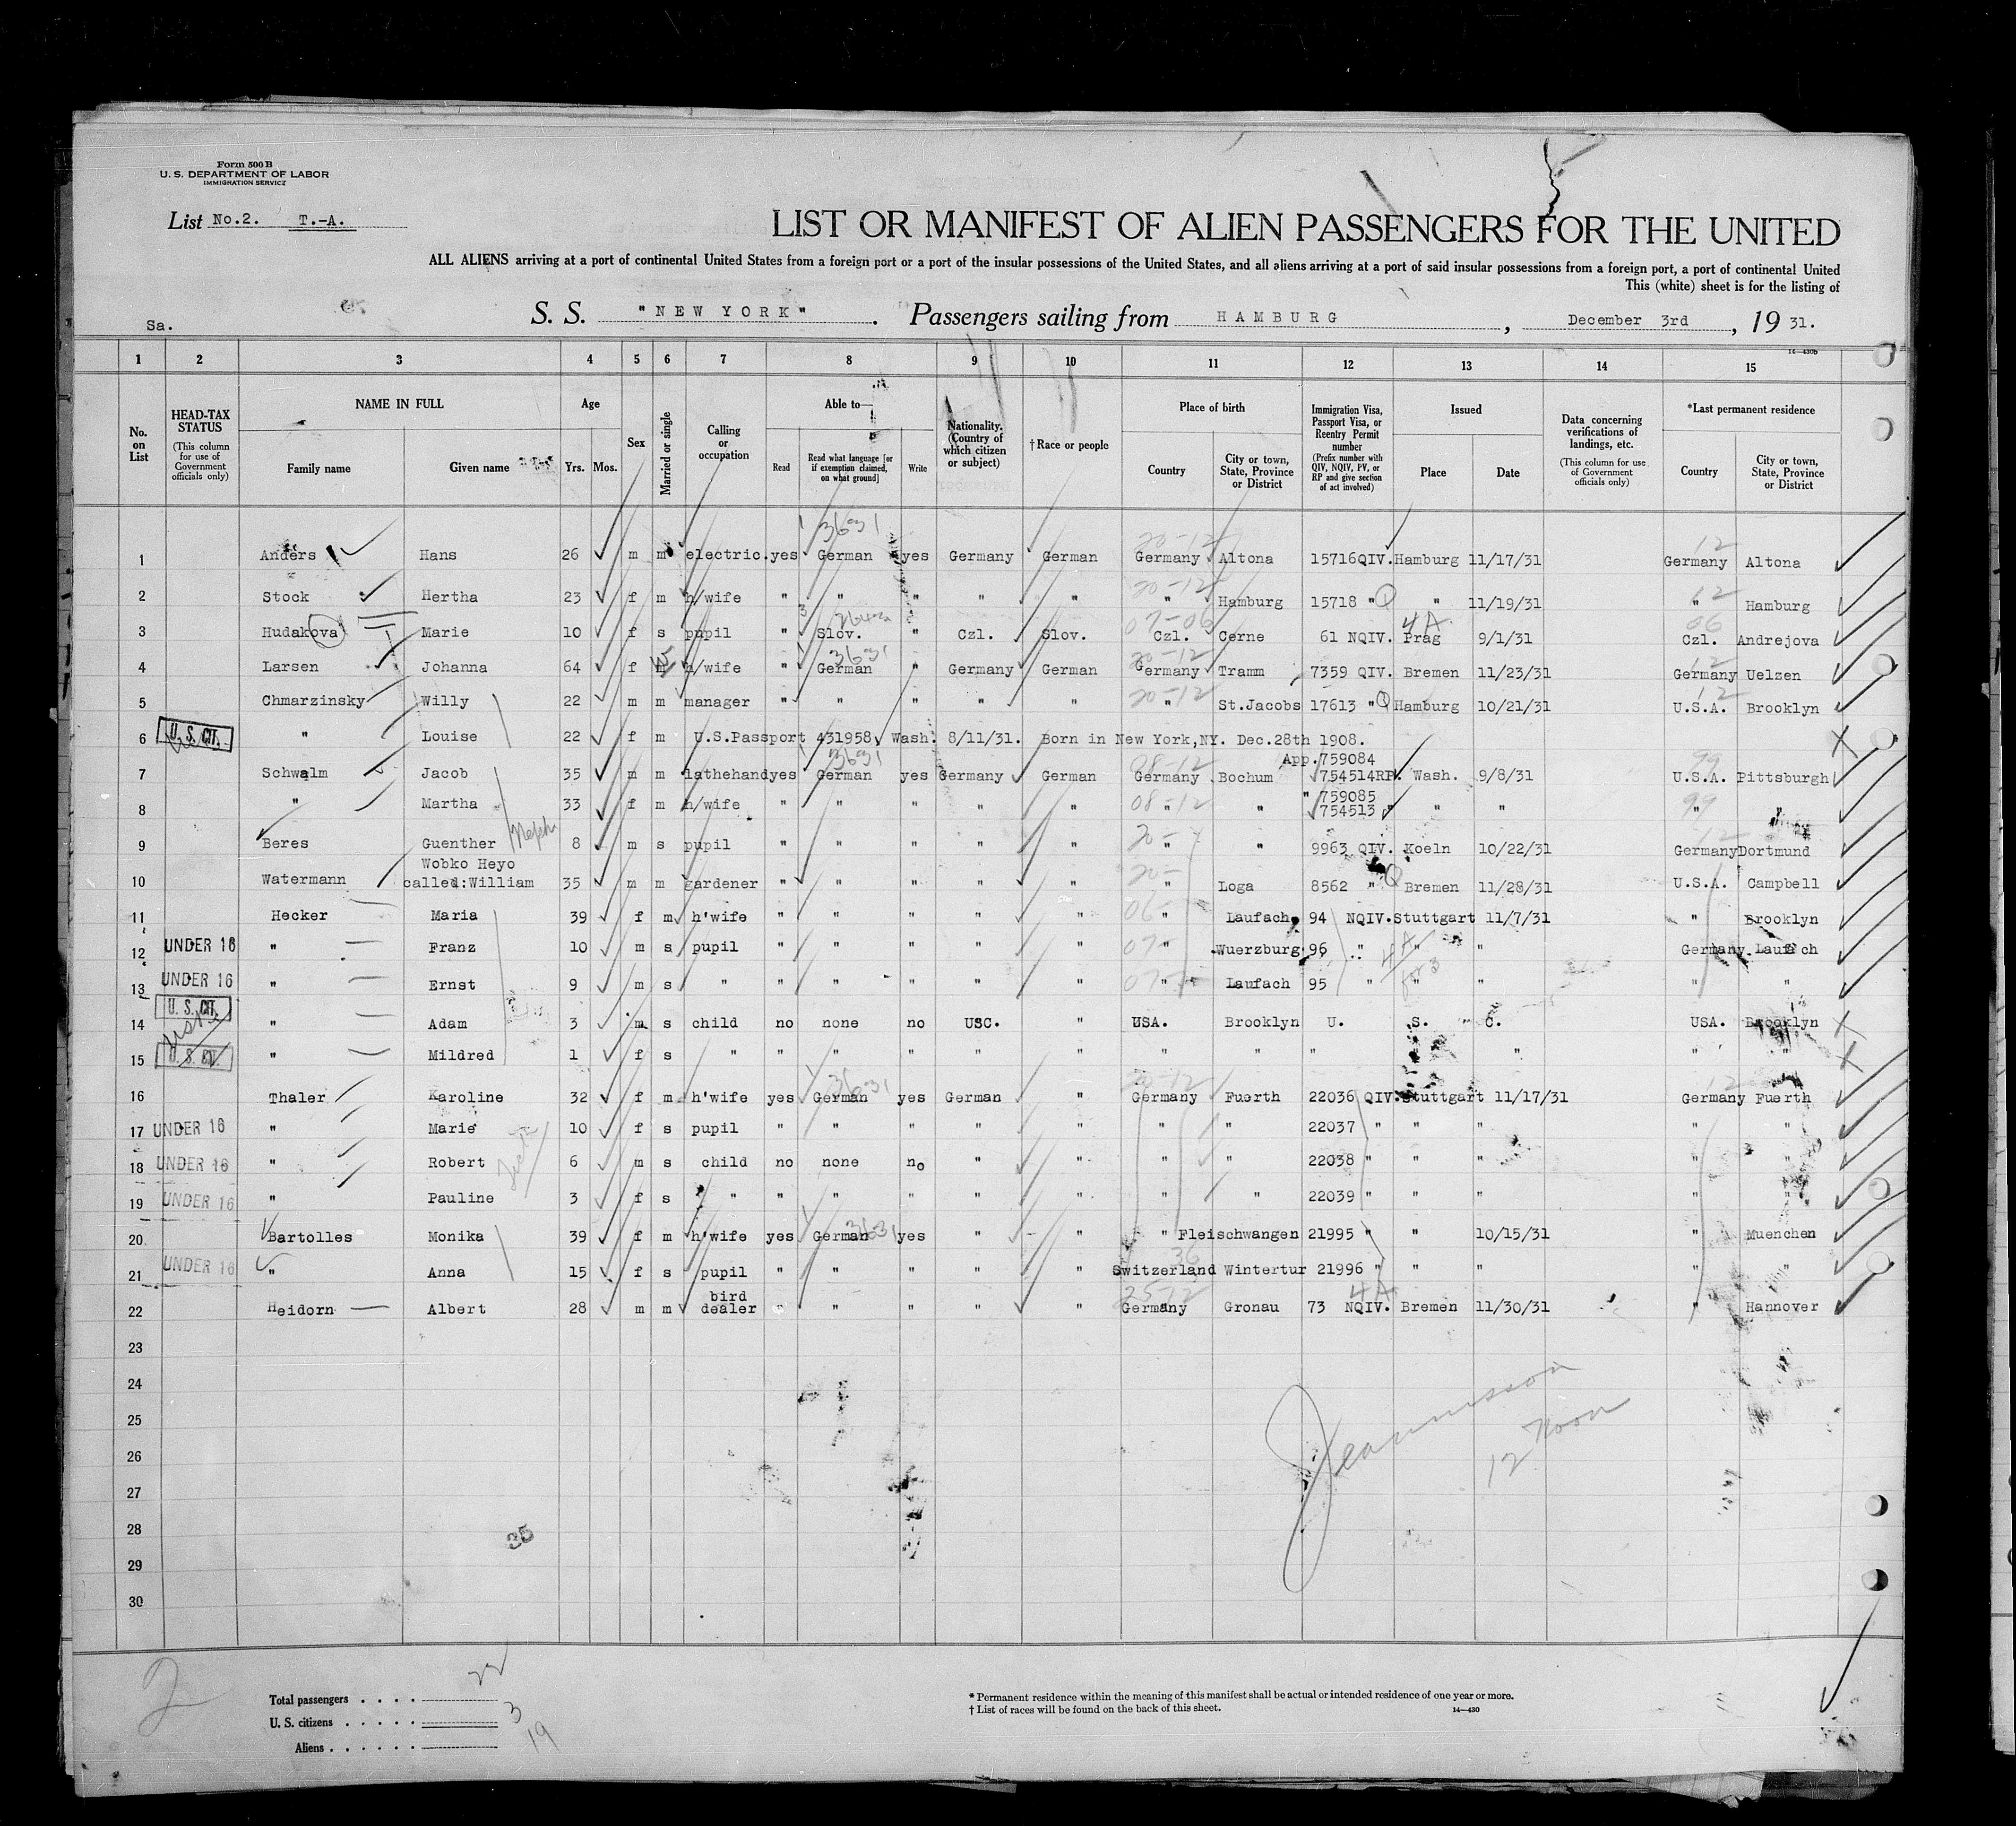 Form 500 B
U. S. DEPARTMENT OF LABOR
IMMIGRATION SERVICE
List No.2. T.-A.
LIST OR MANIFEST OF ALIEN PASSENGERS FOR THE UNITED
ALL ALIENS arriving at a port of continental United States from a foreign port or a port of the insular possessions of the United States, and all aliens arriving at a port of said insular possessions from a foreign port, a port of continental United
This (white) sheet is for the listing of
Sa.
S. S. "NEW YORK". Passengers sailing from HAMBURG, December 3rd, 19 31.
14-430b
1 2 3 4 5 6 7 8 9 10 11 12 13 14 15
No. on List
HEAD-TAX STATUS (This column for use of Government officials only)
NAME IN FULL
Family name Given name
Age
Yrs. Mos.
Sex
Married or single
Calling or occupation
Able to—
Read Read what language [or if exemption claimed, on what ground] Write
Nationality. (Country of which citizen or subject)
† Race or people
Place of birth
Country City or town, State, Province or District
Immigration Visa, Passport Visa, or Reentry Permit number (Prefix number with QIV, NQIV, PV, or RP and give section of act involved)
Issued
Place Date
Data concerning verifications of landings, etc. (This column for use of Government officials only)
*Last permanent residence
Country City or town, State, Province or District
3631 20-12 12
1 Anders Hans 26 m m electric. yes German yes Germany German Germany Altona 15716QIV. Hamburg 11/17/31 Germany Altona
20-12 12
2 Stock Hertha 23 f m h/wife " " " " " " Hamburg 15718 " Q " 11/19/31 " Hamburg
07-06 4A 06
3 Hudakova Marie 10 f s pupil " Slov. " Czl. Slov. Czl. Cerne 61 NQIV. Prag 9/1/31 Czl. Andrejova
3631 20-12 12
4 Larsen Johanna 64 f m h/wife " German " Germany German Germany Tramm 7359 QIV. Bremen 11/23/31 Germany Uelzen
20-12 12
5 Chmarzinsky Willy 22 m m manager " " " " " " St.Jacobs 17613 " Q Hamburg 10/21/31 U.S.A. Brooklyn
6 U. S. CIT. " Louise 22 f m U.S.Passport 431958, Wash. 8/11/31. Born in New York,NY. Dec.28th 1908.
3631 08-12 App.759084 99
7 Schwalm Jacob 35 m m lathehand yes German yes Germany German Germany Bochum 754514RP. Wash. 9/8/31 U.S.A. Pittsburgh
08-12 " 759085 99
8 " Martha 33 f m h/wife " " " " " " " 754513 " " " " "
20- 12
9 Beres Guenther 8 m s pupil " " " " " " " 9963 QIV. Koeln 10/22/31 Germany Dortmund
Wobko Heyo
20- Q
10 Watermann called:William 35 m m gardener " " " " " " Loga 8562 " Bremen 11/28/31 U.S.A. Campbell
06-
11 Hecker Maria 39 f m h'wife " " " " " " Laufach 94 NQIV. Stuttgart 11/7/31 " Brooklyn
07- 4A
12 UNDER 16 " Franz 10 m s pupil " " " " " " Wuerzburg 96 " " " Germany Laufach
07- for 3
13 UNDER 16 " Ernst 9 m s " " " " " " " Laufach 95 " " " " "
14 U. S. CIT. " Adam 3 m s child no none no USC. " USA. Brooklyn U. S. C. USA. Brooklyn
15 U. S. CIT. " Mildred 1 f s " " " " " " " " " " " "
3631 20-12 12
16 Thaler Karoline 32 f m h'wife yes German yes German " Germany Fuerth 22036 QIV. Stuttgart 11/17/31 Germany Fuerth
17 UNDER 16 " Marie 10 f s pupil " " " " " " " 22037 " " " " "
18 UNDER 16 " Robert 6 m s child no none no " " " " 22038 " " " " "
19 UNDER 16 " Pauline 3 f s " " " " " " " " 22039 " " " " "
3631
20 Bartolles Monika 39 f m h'wife yes German yes " " " Fleischwangen 21995 " " 10/15/31 " Muenchen
36
21 UNDER 16 " Anna 15 f s pupil " " " " " Switzerland Wintertur 21996 " " " " "
bird
25-12 4A
22 Heidorn Albert 28 m m dealer " " " " " Germany Gronau 73 NQIV. Bremen 11/30/31 " Hannover
23
24
25
26
27
28
29
30
12 Noon
35
2
Total passengers . . . . 22
U. S. citizens . . . . . 3
Aliens . . . . . . 19
* Permanent residence within the meaning of this manifest shall be actual or intended residence of one year or more.
† List of races will be found on the back of this sheet.
14—430